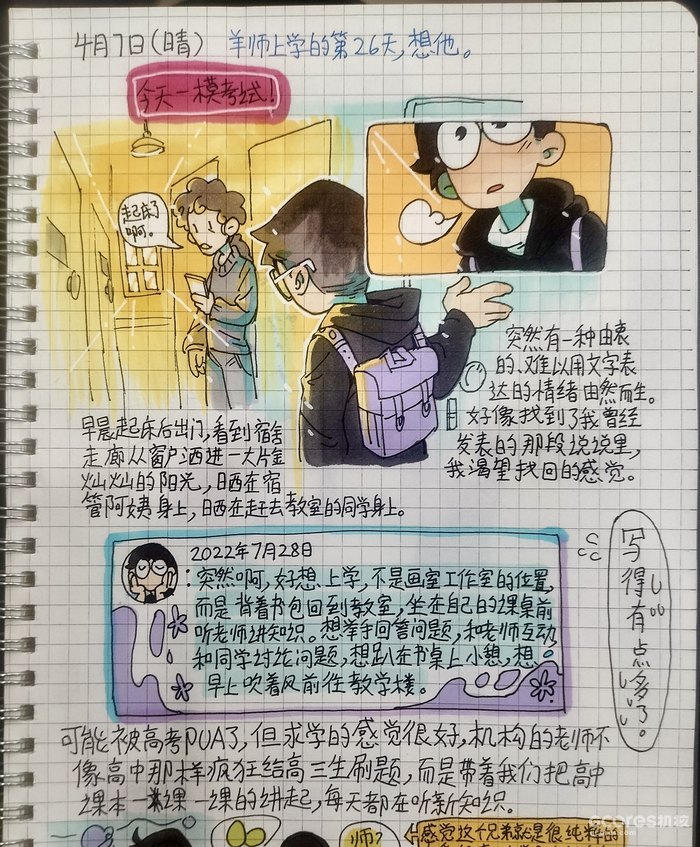 4月7日(晴) 羊师上学的第26天,想他。
今天一模考试!
起床了
啊。
突然有一种由衷
的、难以用文字表
达的情绪由然而生。
好像找到了我曾经
发表的那段说说里,
我渴望找回的感觉。
早晨起床后出门,看到宿舍
走廊从窗户洒进一大片金
灿灿的阳光,晒在宿
管阿姨身上,晒在赶去教室的同学身上。
2022年7月28日
:突然啊,好想上学,不是画室工作室的位置,
而是背着书包回到教室,坐在自己的课桌前
听老师讲知识。想举手回答问题,和老师互动
和同学讨论问题,想趴在书桌上小憩,想
早上吹着风前往教学楼。
写得有点多了。
可能被高考PUA了,但求学的感觉很好,机构的老师不
像高中那样疯狂给高三生刷题,而是带着我们把高中
课本一课一课的讲起,每天都在听新知识。
师?
感觉这个兄弟就是很纯粹的
gcores机核